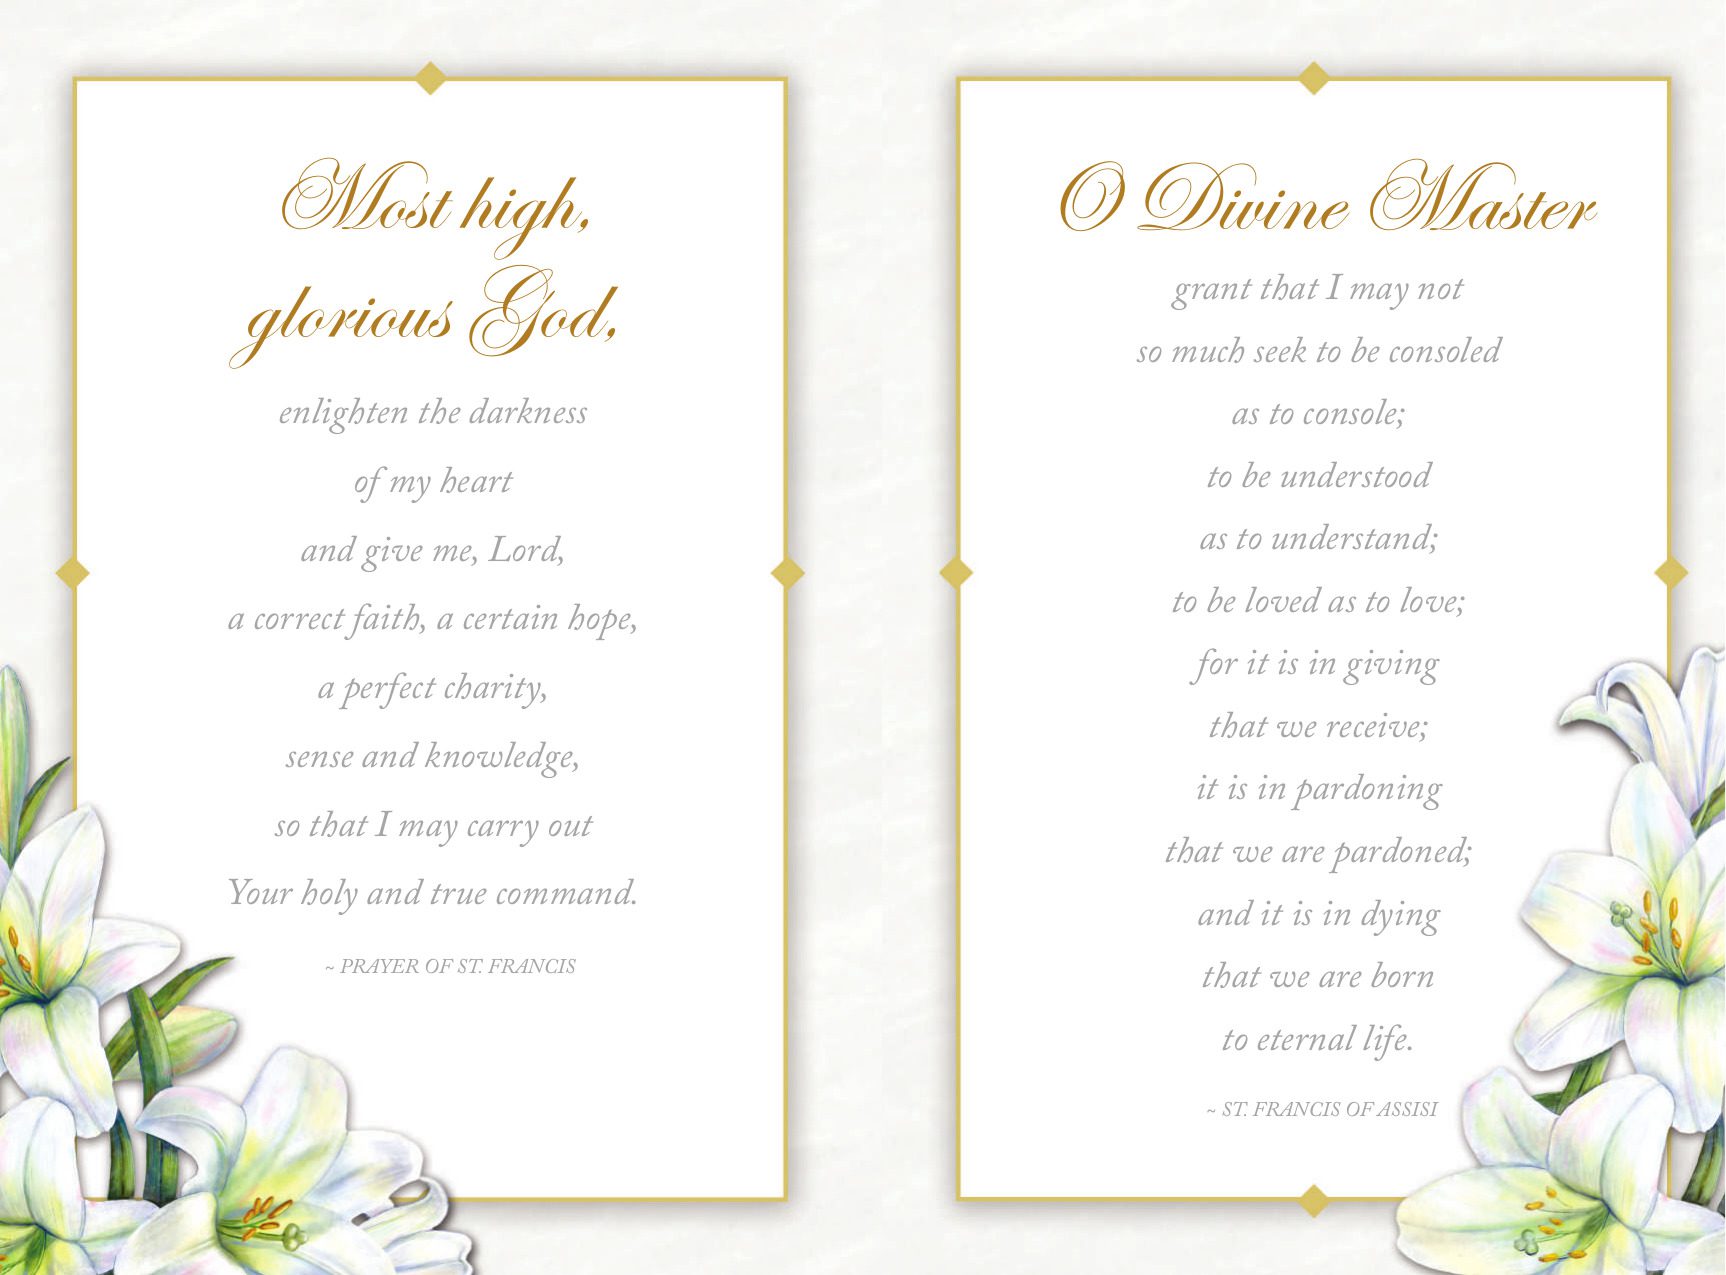 Most high,
glorious God,
enlighten the darkness
of my heart
and give me, Lord,
a correct faith, a certain hope,
a perfect charity,
sense and knowledge,
so that I may carry out
Your holy and true command.
~ PRAYER OF ST. FRANCIS
O Divine Master
grant that I may not
so much seek to be consoled
as to console;
to be understood
as to understand;
to be loved as to love;
for it is in giving
that we receive;
it is in pardoning
that we are pardoned;
and it is in dying
that we are born
to eternal life.
~ ST. FRANCIS OF ASSISI